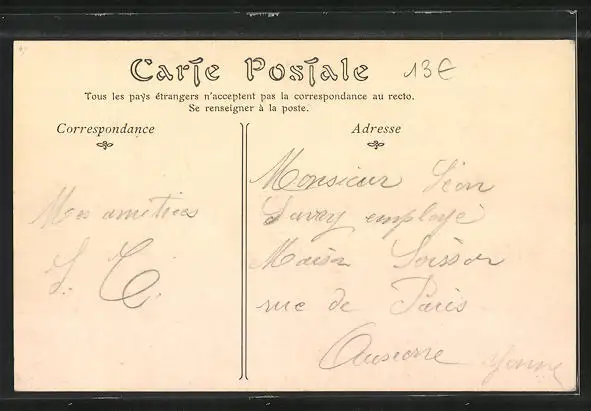 Carte Postale 13€
Tous les pays étrangers n'acceptent pas la correspondance au recto.
Se renseigner à la poste.
Correspondance
Adresse
Mes amitiées
Monsieur Léon
employé
Maison Soisson
rue de Paris
Auxerre Yonne